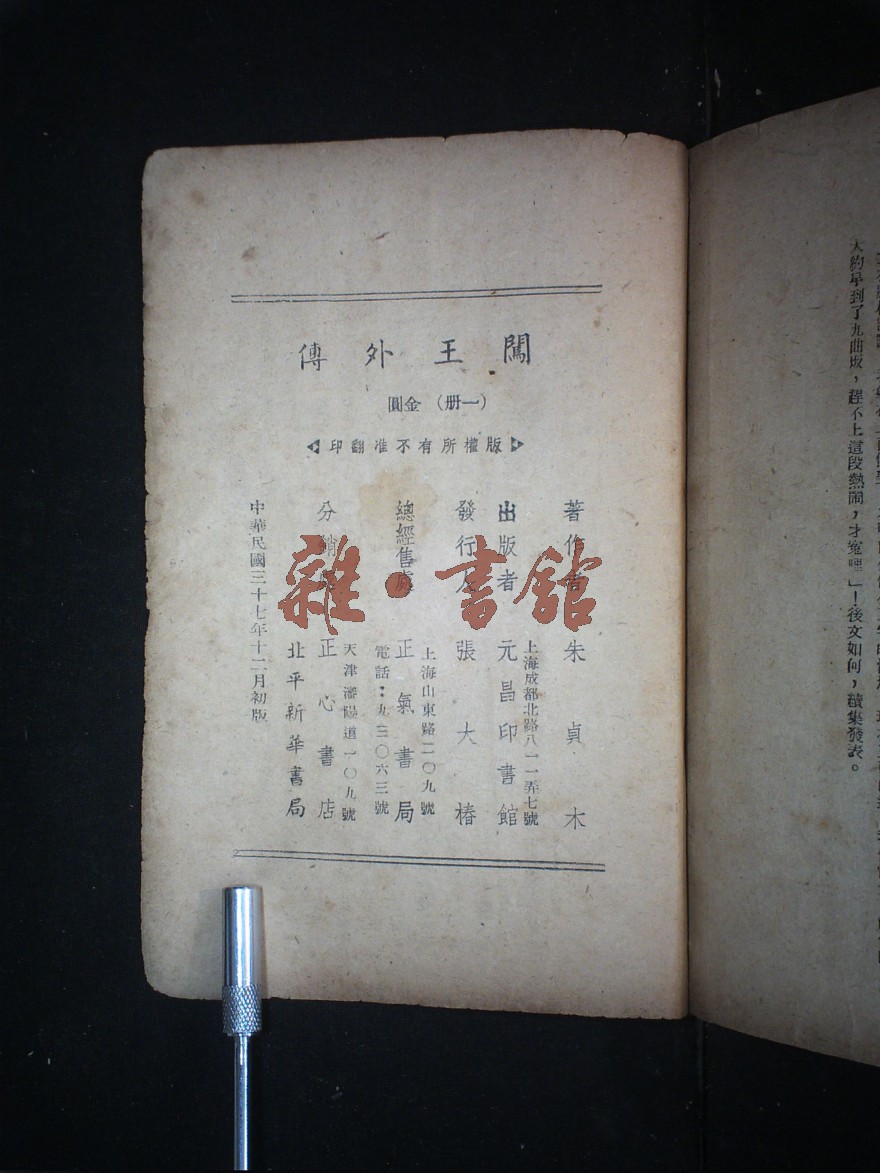 闖王外傳
（一册）金圓
版權所有不准翻印
著作者 朱貞木
上海成都北路八一一弄七號
出版者 元昌印書館
發行人 張大椿
上海山東路二〇九號
總經售處 正氣書局
電話：九三〇六三號
天津瀋陽道一〇九號
分銷處 正心書店
北平新華書局
中華民國三十七年十二月初版
雜·書館
大約早到了九曲坂，趕不上這段熱鬧，才寃哩」！後文如何，續集發表。